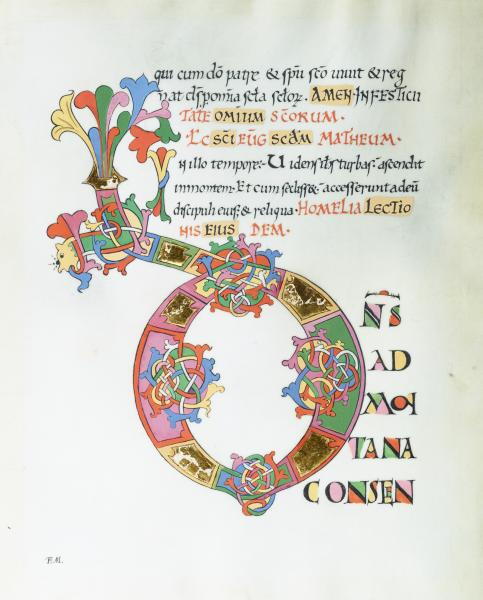 qui cum dō patre & spū scō uiuit & reg
nat dsp omia scla sclor. AMEN. INFESTIUI
TATE OMIUM SCORUM.
LC SCI EUG SCDM MATHEUM.
In illo tempore. Uidens ihs turbas ascendit
inmontem. Et cum sedisse& accesserunt adeū
discipuli eius & reliqua. HOMELIA LECTIO
NIS EIUS DEM.
D
NS
AD
MON
TANA
CONSEN
F.M.